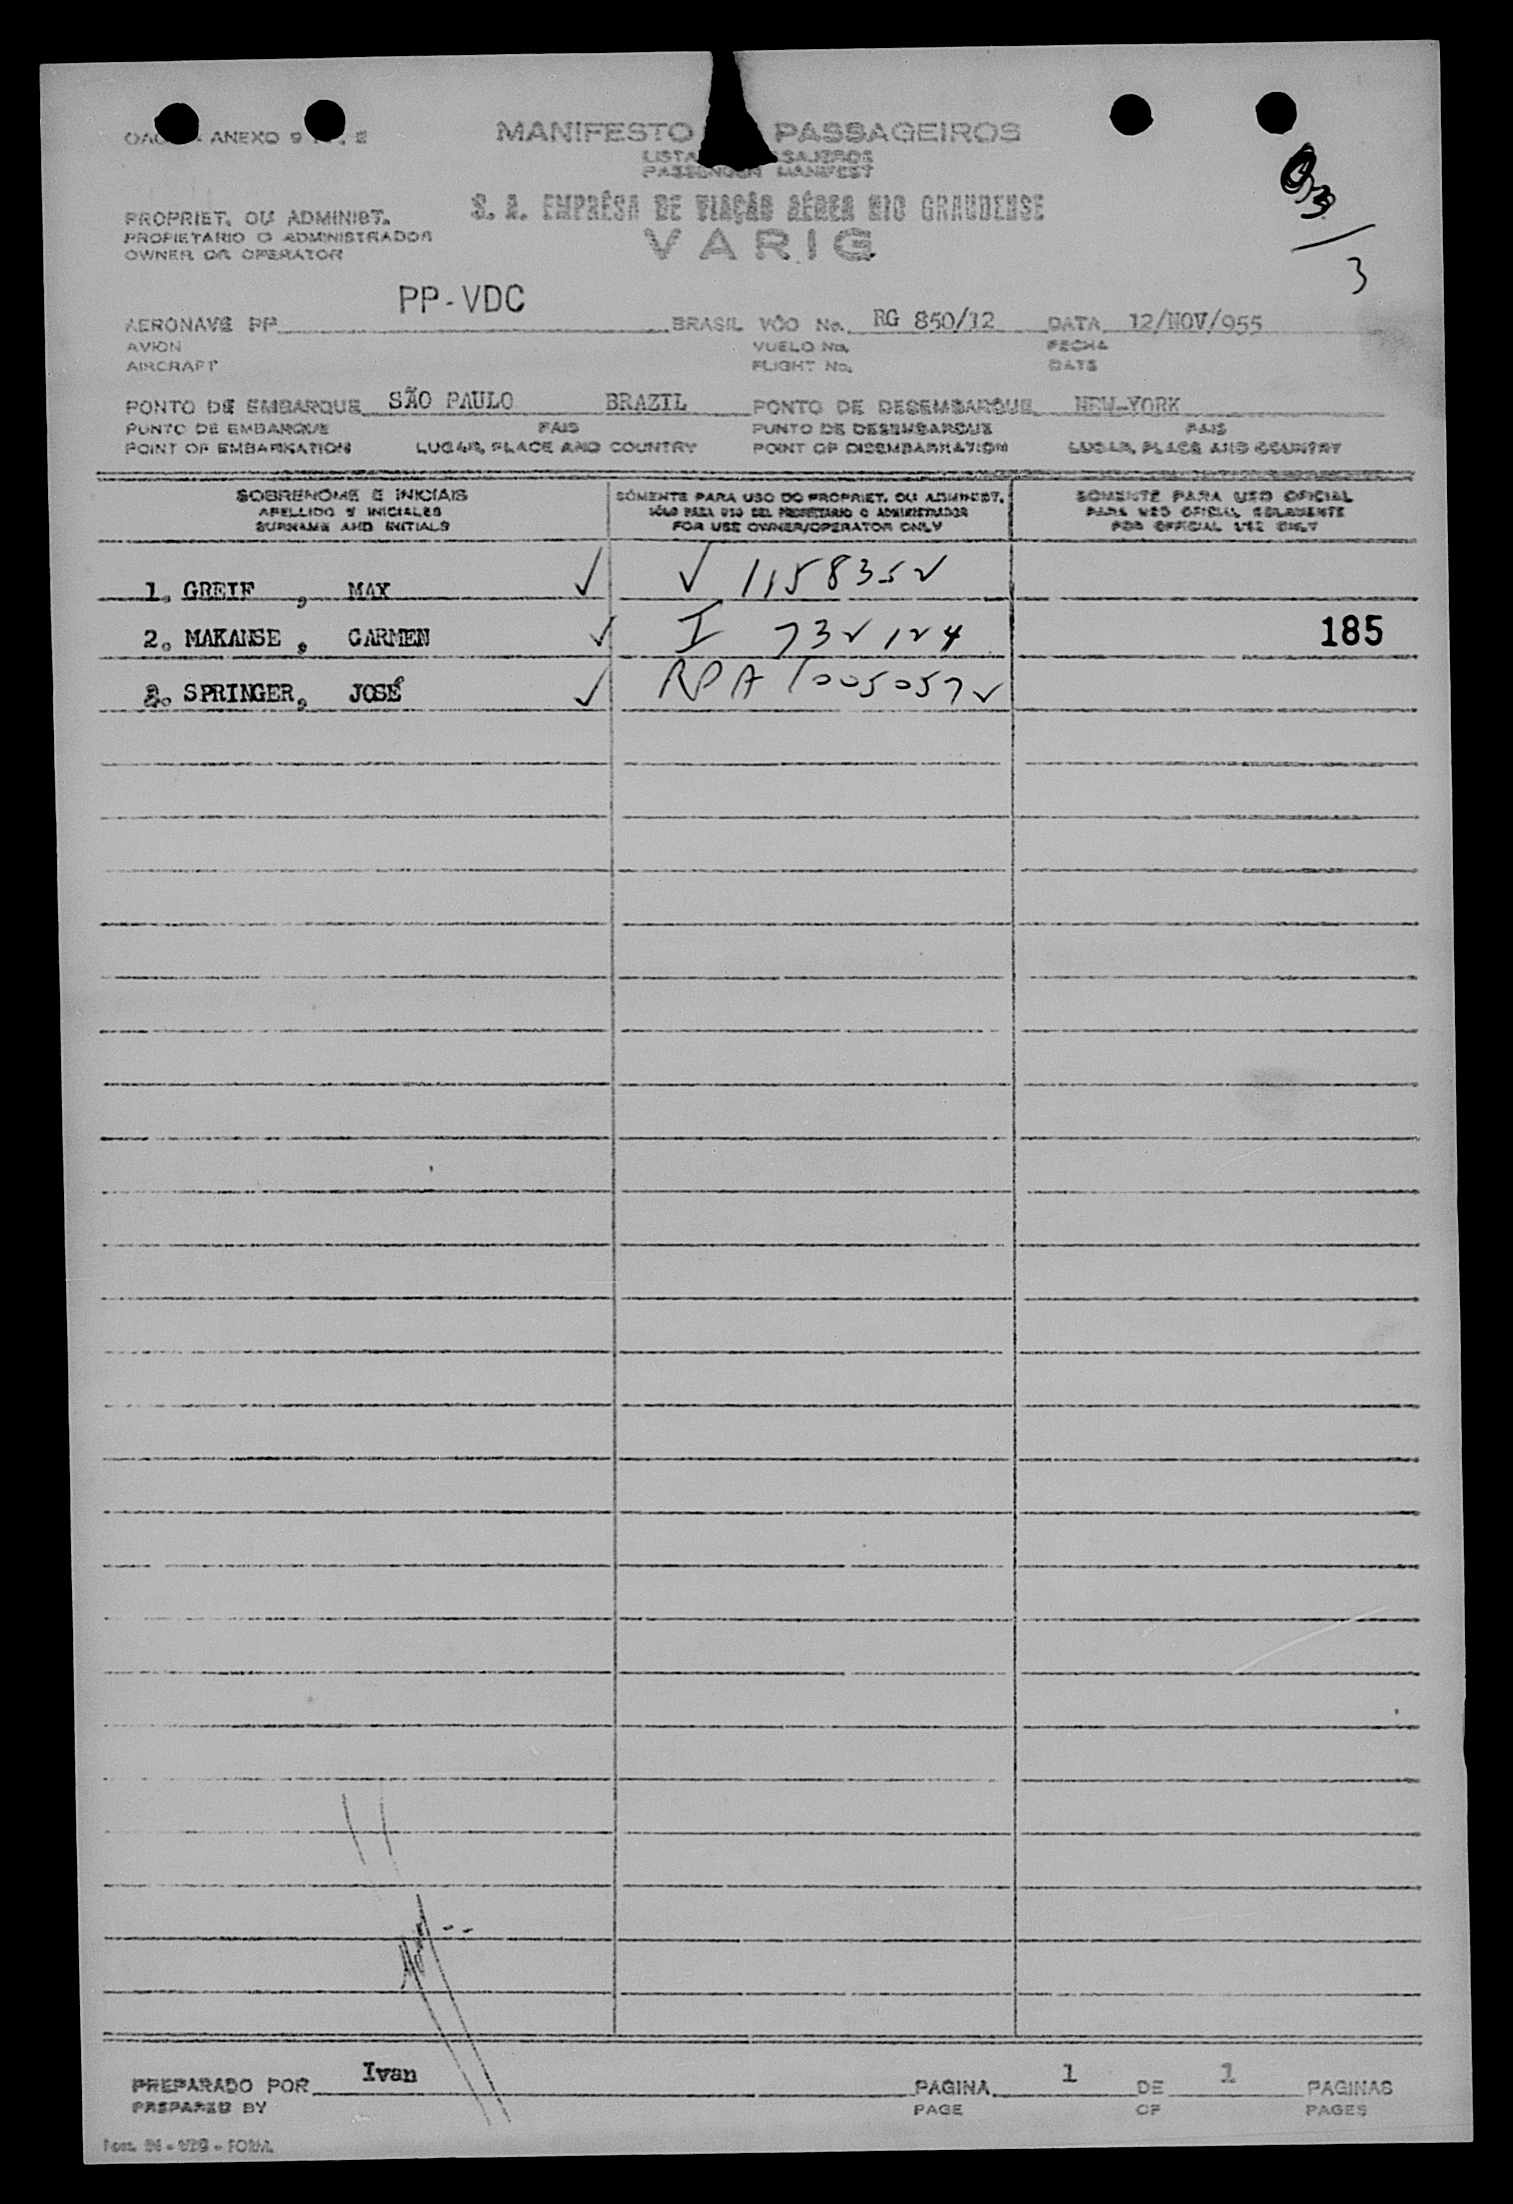 ANEXO 9
MANIFESTO PASSAGEIROS
LISTA
PASSENGER MANIFEST
S. A. EMPRÊSA DE VIAÇÃO AÉREA RIO GRANDENSE
VARIG
PROPRIET. OU ADMINIST.
PROPIETARIO O ADMINISTRADOR
OWNER OR OPERATOR
3
PP-VDC
AERONAVE PP BRASIL VÔO No. RG 850/12 DATA 12/NOV/955
AVION VUELO No. FECHA
AIRCRAFT FLIGHT No. DATE
PONTO DE EMBARQUE SÃO PAULO BRAZIL PONTO DE DESEMBARQUE NEW-YORK
PUNTO DE EMBARQUE PAIS PUNTO DE DESEMBARQUE PAIS
POINT OF EMBARKATION LUGAR, PLACE AND COUNTRY POINT OF DISEMBARKATION LUGAR, PLACE AND COUNTRY
SOBRENOME E INICIAIS SÓMENTE PARA USO DO PROPRIET. OU ADMINIST. SOMENTE PARA USO OFICIAL
APELLIDO Y INICIALES SÓLO PARA USO DEL PROPIETARIO O ADMINISTRADOR PARA USO OFICIAL SOLAMENTE
SURNAME AND INITIALS FOR USE OWNER/OPERATOR ONLY FOR OFFICIAL USE ONLY
1. GREIF , MAX ✓ ✓ 1158352
2. MAKANSE , CARMEN ✓ I 732124 185
3. SPRINGER, JOSÉ ✓ RPA 1005057 ✓
PREPARADO POR Ivan PAGINA 1 DE 1 PAGINAS
PREPARED BY PAGE OF PAGES
FORM.